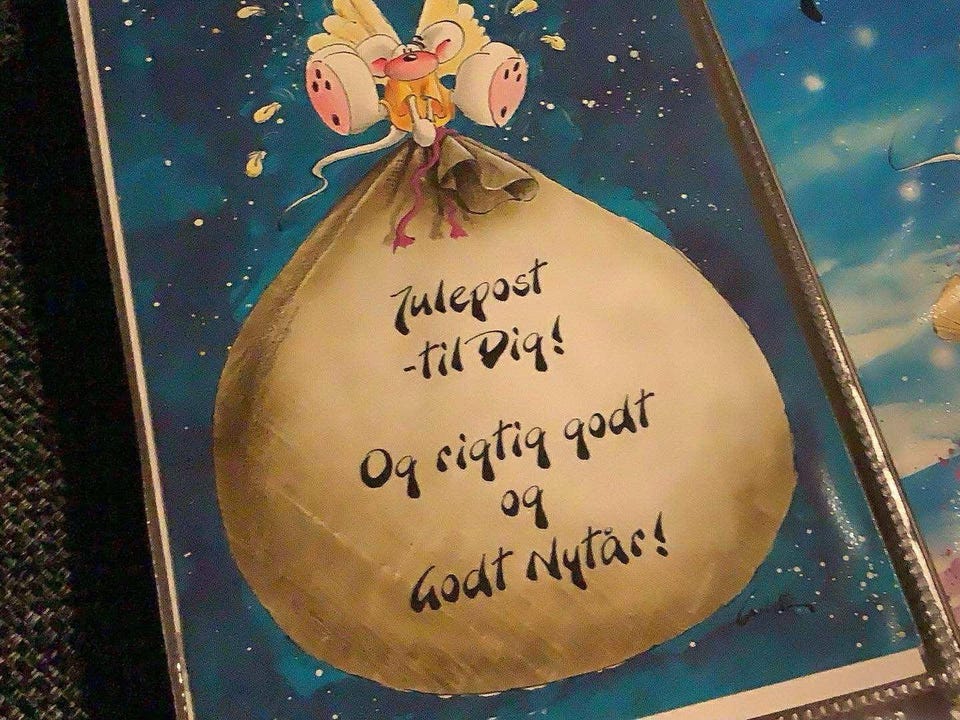 Julepost
-til Dig!
Og rigtig godt
og
Godt Nytår!